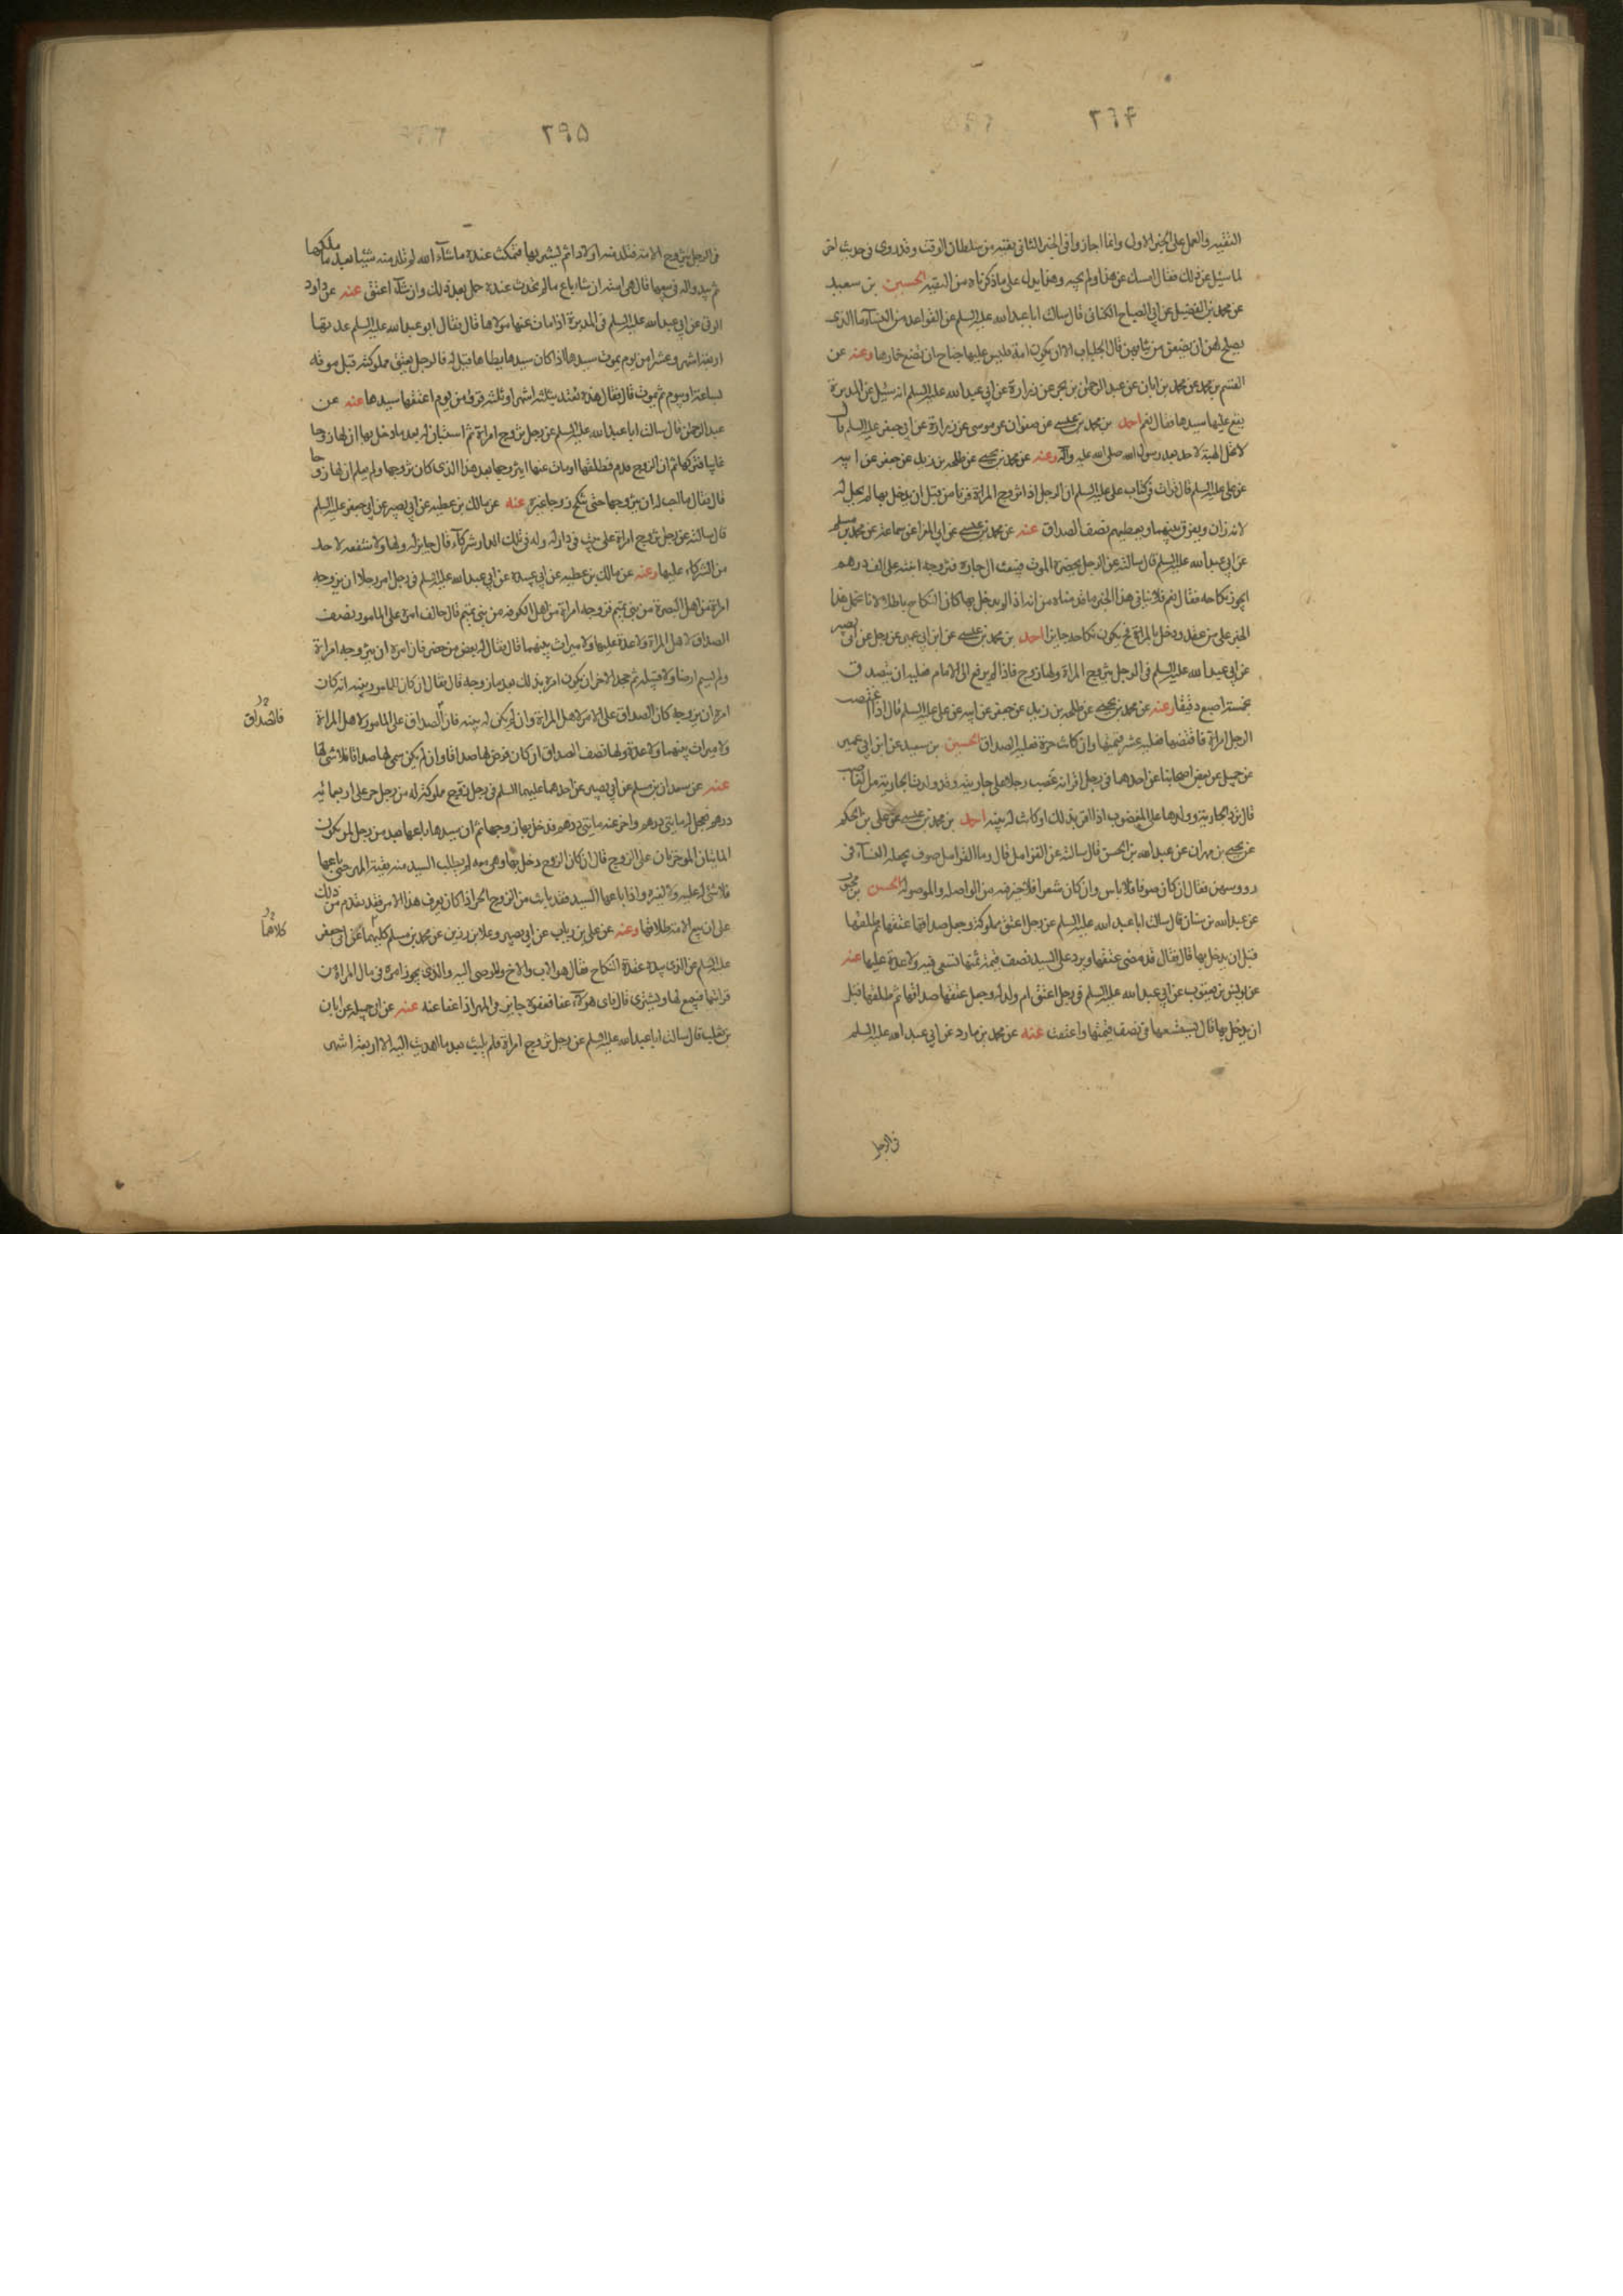 ٢٦۴
التقيه والعمل على الخبر الاول وانما اجاز وا فى الخبر الثانى بقيته من سلطان الوقت وقد روى فى حديث اخر
لما سئل عن ذلك فقال امسك عن هذا ولم يجبه وهذا يدل على ما ذكرناه من التقيه الحسين بن سعيد
عن محمد بن الفضيل عن ابى الصباح الكنانى قال سالت ابا عبد الله عليه السلم عن القواعد من النساء ما الذى
يصلح لهن ان يضعن من ثيابهن قال الجلباب الا ان يكون امة فليس عليها جناح ان تضع خمارها وعنه عن
القسم بن محمد عن محمد بن ابان عن عبد الرحمن بن بحر عن زرارة عن ابى عبد الله عليه السلم انه سئل عن المدبرة
يقع عليها سيدها فقال نعم احمد بن محمد بن عيسى عن صفوان عن موسى عن زرارة عن ابى جعفر عليه السلم قال
لا تحل الهبة لاحد بعد رسول الله صلى الله عليه وآله وعنه عن محمد بن يحيى عن طلحه بن زيد عن جعفر عن ابيه
عن على عليه السلم قال قرات فى كتاب على عليه السلم ان الرجل اذا تزوج المراة فزنا من قبل ان يدخل بها لم يحل له
لانه زان ويفرق بينهما ويعطيهم نصف الصداق عنه عن محمد بن عيسى عن ابى المغرا عن سماعة عن محمد بن مسلم
عن ابى عبد الله عليه السلم قال سالته عن الرجل يحضره الموت فيبعث الى جاره فتزوجه ابنته على الف درهم
ايجوز نكاحه فقال نعم فلا ينافى هذا الخبر ما قدمناه من انه اذا لم يدخل بها كان النكاح باطلا لانا نحمل هذا
الخبر على من عقد ودخل بالمراة فح يكون نكاحه جايزا احمد بن محمد بن عيسى عن ابن ابى عمير عن رجل عن ابى بصير
عن ابى عبد الله عليه السلم فى الرجل يتزوج المراة ولها زوج فاذا لم يرفع الى الامام فعليه ان يتصدق
بخمسة اصيع دقيقا وعنه عن محمد بن يحيى عن طلحه بن زيد عن جعفر عن ابيه عن على عليه السلم قال اذا اغتصب
الرجل امراة فاقتضها فعليه عشر قيمتها وان كانت حرة فعليه الصداق الحسين بن سعيد عن ابن ابى عمير
عن جميل عن بعض اصحابنا عن احدهما فى رجل اقر انه غصب رجلا على جاريته وقد ولدت الجارية من الغاصب
قال ترد الجارية وولدها على المغصوب اذا اقر بذلك او كانت له بينه احمد بن محمد بن عيسى عن على بن الحكم
عن يحيى بن مهران عن عبد الله بن الحسن قال سالته عن القرامل قال وما القرامل صوف يجعله النساء فى
رووسهن فقال ان كان صوفا فلا باس وان كان شعرا فلا خير فيه من الواصله والموصوله الحسن بن محبوب
عن عبد الله بن سنان قال سالت ابا عبد الله عليه السلم عن رجل اعتق مملوكة وجعل صداقها عتقها ثم طلقها
قبل ان يدخل بها قال فقال قد مضى عتقها ويرد على السيد نصف قيمة ثمنها تسعى فيه ولا عدة عليها عنه
عن يونس بن يعقوب عن ابى عبد الله عليه السلم فى رجل اعتق ام ولد له وجعل عتقها صداقها ثم طلقها قبل
ان يدخل بها قال يستسعيها فى نصف قيمتها واعتقت عنه عن محمد بن مارد عن ابى عبد الله عليه السلم
فى الرجل
٢٩۵
فى الرجل يتزوج الامة فتلد منه اولادا ثم يشتريها فتمكث عنده ما شاء الله لم تلد منه شيئا بعد ما ملكها
ثم يبدو له فى بيعها قال هى امته ان شاء باع ما لم يحدث عنده حمل بعد ذلك وان شاء اعتق عنه عن داود
الرقى عن ابى عبد الله عليه السلم فى المدبرة اذا مات عنها مولاها قال فقال ابو عبد الله عليه السلم عدتها
اربعة اشهر وعشرا من يوم يموت سيدها اذا كان سيدها يطاها قيل له فالرجل يعتق مملوكته قبل موته
بساعة او بيوم ثم يموت قال فقال هذه تعتد بثلثة اشهر او ثلثة قروء من يوم اعتقها سيدها عنه عن
عبد الرحمن قال سالت ابا عبد الله عليه السلم عن رجل تزوج امراة ثم استبان له بعد ما دخل بها ان لها زوجا
غايبا فتركها ثم ان الزوج قدم فطلقها او مات عنها ايتزوجها بعد هذا الذى كان تزوجها ولم يعلم ان لها زوجا
قال فقال ما احب له ان يتزوجها حتى تنكح زوجا غيره عنه عن مالك بن عطيه عن ابى بصير عن ابى جعفر عليه السلم
قال سالته عن رجل تزوج امراة على بيت فى دار له وله فى تلك الدار شركآء قال جايز له ولها ولا شفعه لاحد
من الشركاء عليها وعنه عن مالك بن عطيه عن ابى عبيدة عن ابى عبد الله عليه السلم فى رجل امر رجلا ان يزوجه
امراة من اهل البصرة من بنى تميم فزوجه امراة من اهل الكوفه من بنى تميم قال خالف امره على المامور نصف
الصداق لاهل المراة ولا عدة عليها ولا ميراث بينهما قال فقال له بعض من حضر فان امره ان يزوجه امراة
ولم يسم ارضا ولا قبيله ثم جحد الآمر ان يكون امره بذلك بعد ما زوجه قال فقال ان كان للمامور بينه انه كان
امره ان يزوجه كان الصداق على الآمر لاهل المراة وان لم يكن له بينه فان الصداق على المامور لاهل المراة
فالصداق
ولا ميراث بينهما ولا عدة ولها نصف الصداق ان كان فرض لها صداقا وان لم يكن سمى لها صداقا فلا شى لها
عنه عن سعدان بن مسلم عن ابى بصير عن احدهما عليهما السلم فى رجل يزوج مملوكته له من رجل حر على اربعمائه
درهم فعجل له مايتى درهم واخر عنه مايتى درهم فدخل بها زوجها ثم ان سيدها باعها بعد من رجل لمن يكون
المايتان المؤخرتان على الزوج قال ان كان الزوج دخل بها وهى معه ولم يطلب السيد منه بقية المهر حتى باعها
فلا شى له عليه ولا لغيره واذا باعها السيد فقد بانت من الزوج الحر اذا كان يعرف هذا الامر فقد تقدم من ذلك
على ان بيع الامة طلاقها وعنه عن على بن رياب عن ابى بصير وعلا بن رزين عن محمد بن مسلم كليهما عن ابى جعفر
كلاهما
عليه السلم عن الذى بيده عقدة النكاح فقال هو الاب والاخ والموصى اليه والذى يجوز امره فى مال المراة من
قرابتها فيبيع لها ويشترى قال فاى هؤلاء عفا فعفوه جايز فى المهر اذا عفا عنه عنه عن ابى جميله عن ابان
بن تغلب قال سالت ابا عبد الله عليه السلم عن رجل تزوج امراة فلم يلبث بعد ما اهديت اليه الا اربعة اشهر